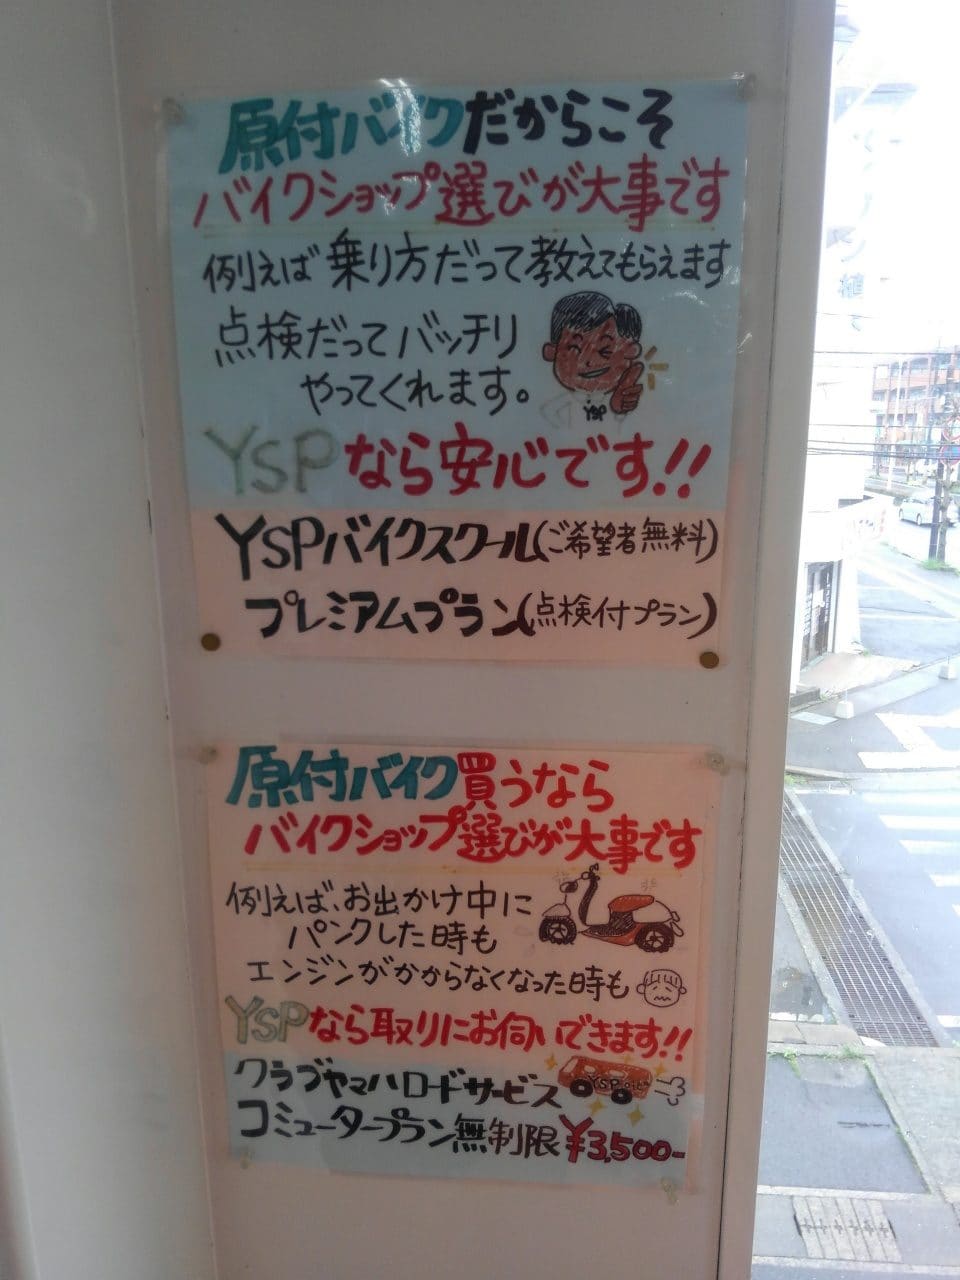 原付バイクだからこそ
バイクショップ選びが大事です
例えば乗り方だって教えてもらえます
点検だってバッチリ
やってくれます。
YSP
YSPなら安心です!!
YSPバイクスクール(ご希望者無料)
プレミアムプラン(点検付プラン)
原付バイク買うなら
バイクショップ選びが大事です
例えば、お出かけ中に
パンクした時も
エンジンがかからなくなった時も
YSPなら取りにお伺いできます!!
クラブヤマハロードサービス
YSP
コミュータープラン無制限¥3,500-